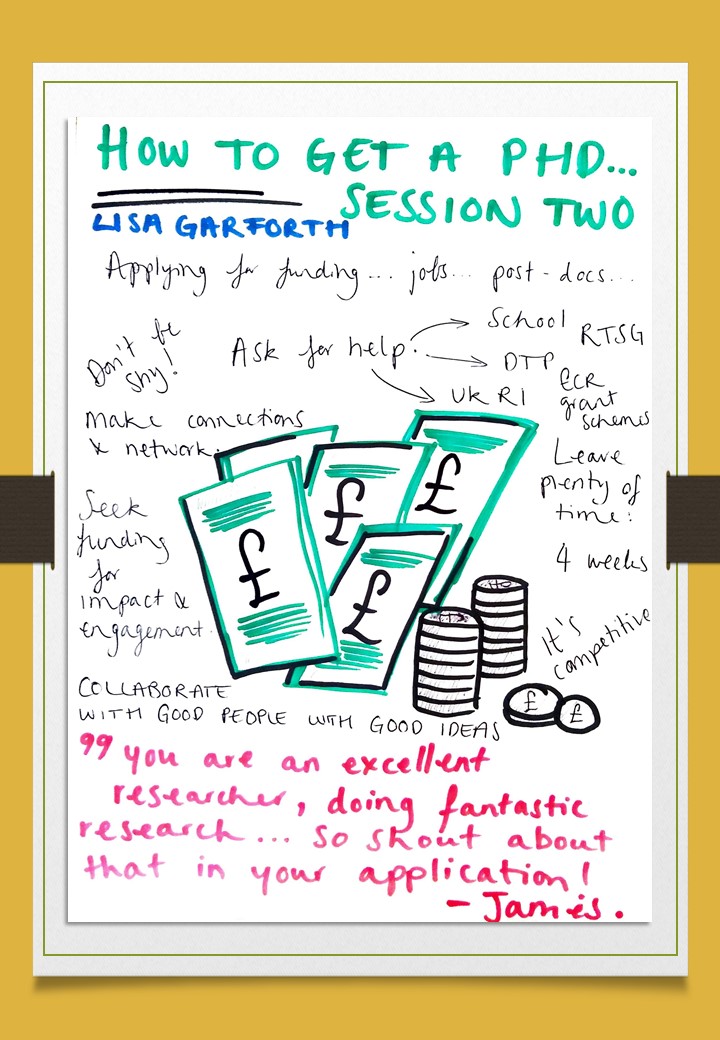 HOW TO GET A PHD...
SESSION TWO
LISA GARFORTH
Applying for funding... jobs... post-docs...
Don't be
shy!
Ask for help.
School
RTSG
DTP
UKRI
ECR
grant
schemes
make connections
& network.
Leave
plenty of
time:
4 weeks
Seek
funding
for
impact &
engagement.
It's
competitive
£
£
£
£
£
£
COLLABORATE
WITH GOOD PEOPLE WITH GOOD IDEAS
"you are an excellent
researcher, doing fantastic
research... so shout about
that in your application!
- James.